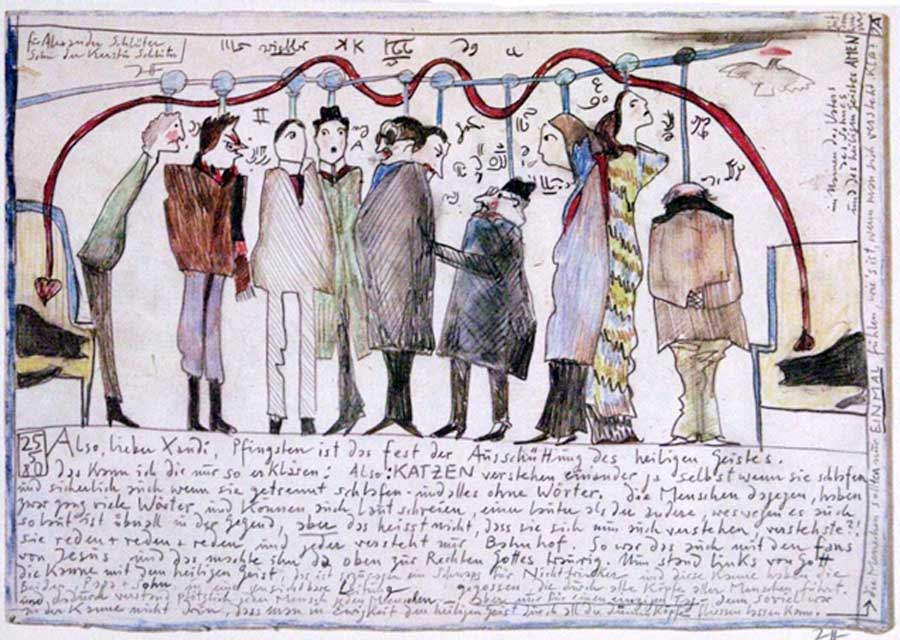 für Alexander Schlüter
Sohn der Kerstin Schlüter
im Namen des Vaters
des Sohnes
und des heiligen Geistes AMEN
25
5
80
Also, lieber Xandi, Pfingsten ist das fest der Ausschüttung des heiligen Geistes.
Das kann ich dir nur so erklären: Also: KATZEN verstehen einander ja selbst wenn sie schlafen
und sicherlich auch wenn sie getrennt schlafen - und alles ohne Wörter. die Menschen dagegen, haben
zwar ganz viele Wörter, und können auch laut schreien, einer lauter als der andere, weswegen es auch
so laut ist überall in der Gegend, aber das heisst nicht, dass sie sich nun auch verstehen, verstehste?!
sie reden + reden + reden und jeder versteht nur Bahnhof. So war das auch mit den fans
von Jesus und das machte ihn da oben zur Rechten Gottes traurig. Nun stand links von Gott
die Kanne mit dem heiligen Geist, das ist sozusagen ein Schnaps für Nichttrinker und diese Kanne haben die
beiden, Papa + Sohn in eine unsichtbare Leitung gegossen, die durch alle Köpfe aller Menschen führt.
und dadurch verstand plötzlich jeder Mensch jeden Menschen - aber nur für einen einzigen Tag - denn soviel war
in der Kanne nicht drin, dass man in Ewigkeit den heiligen Geist durch all die Köpfe fliessen lassen kann.
die Menschen sollten nur EINMAL fühlen, wie's ist, wenn man sich versteht klar?